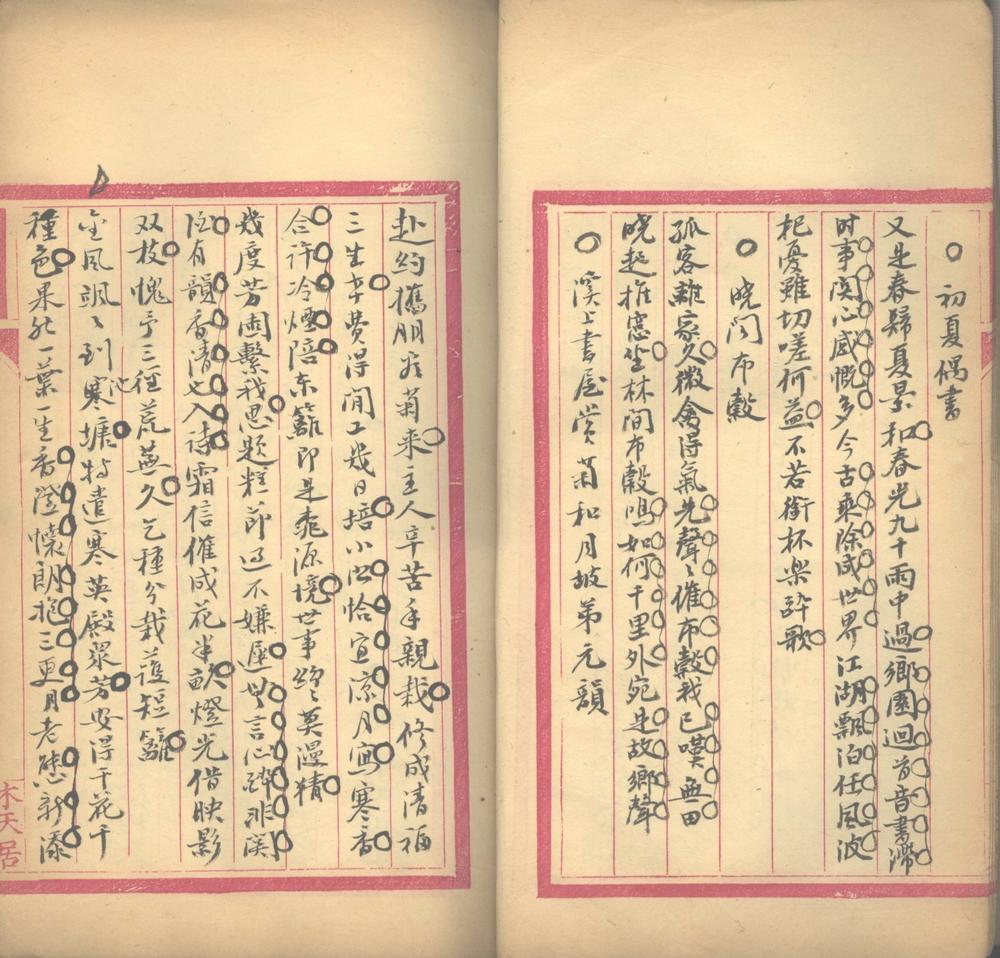 初夏偶書
又是春歸夏景和春光九十雨中過鄉園迴首音書滯
时事関心感慨多今古乘除咸世界江湖飄泊任風波
杞憂雖切嗟何益不若銜杯樂醉歌
曉聞布穀
孤客離家久微禽得氣先聲〻催布穀我已嘆無田
曉起推窓坐林間布穀鳴如何千里外宛是故鄉聲
溪上書屋賞菊和月坡弟元韻
赴約攜朋為菊來主人辛苦手親栽修成清福
三生幸費得閒工幾日培小坐恰宜涼月寫寒香
合許冷煙陪东籬即是桃源境世事紛〻莫漫猜
幾度芳園繫我思題糕節过不嫌遲無言心醉非関
酒有韻香清七入诗霜信催成花半畝燈光借映影
双枝愧予三徑荒蕪久乞種分栽護短籬
金風颯〻到寒塘池特遣寒英殿眾芳安得千花千
種色果然一葉一生香澄懷朗抱三更月老態新添
木天居